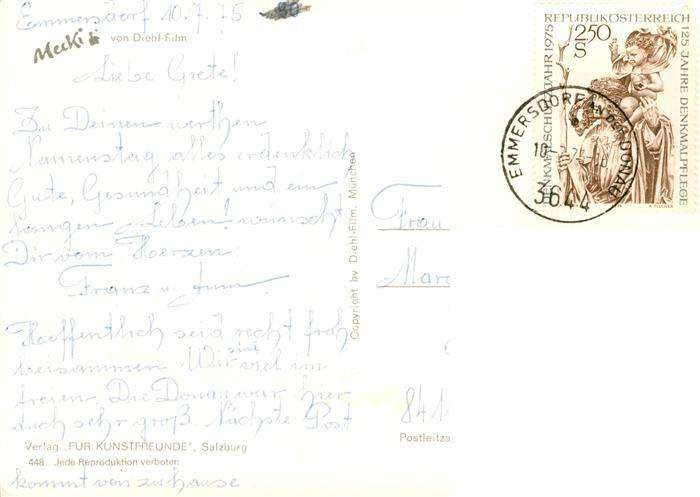 Emmersdorf 10.7.75
Mecki
von Diehl-Film
Liebe Grete!
Zu Deinen werthen
Namenstag alles erdenklich
Gute, Gesundheit und ein
langen Leben! wünscht
Dir vom Herzen
Franz u.
Hoffentlich seid recht froh
beisammen. Wir sind viel im
freien. Die Donau war hier
auch sehr groß. Nächste Post
kommt von zuhause.
Verlag „FÜR KUNSTFREUNDE", Salzburg
448. Jede Reproduktion verboten
Copyright by Diehl-Film, München
Frau
Marg
841
Postleitza
REPUBLIK ÖSTERREICH
2.50
S
DENKMALSCHUTZJAHR 1975
125 JAHRE DENKMALPFLEGE
EMMERSDORF AN DER DONAU
3644